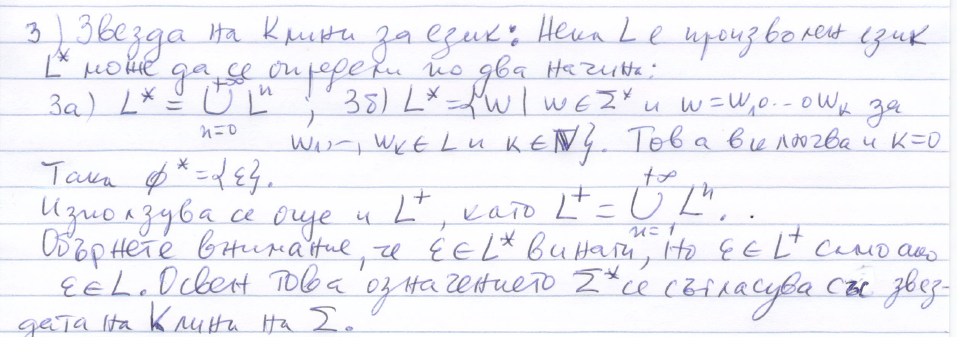 3) Звезда на Клини за език: Нека L е произволен език
L* може да се определи по два начина:
3а) L* = ⋃_{n=0}^{+∞} Lⁿ ; 3б) L* = {w | w ∈ Σ* и w = w₁∘...∘w_k за
w₁,..., w_k ∈ L и k ∈ ℕ}. Това включва и k=0
Така ϕ* = {ε}.
Използува се още и L⁺, като L⁺ = ⋃_{n=1}^{+∞} Lⁿ. .
Обърнете внимание, че ε ∈ L* винаги, но ε ∈ L⁺ само ако
ε ∈ L. Освен това означението Σ* се съгласува със звез-
дата на Клини на Σ.